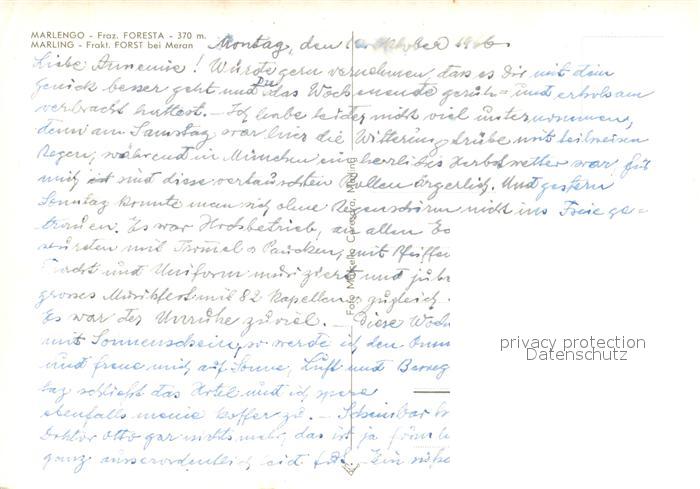 MARLENGO - Fraz. FORESTA - 370 m.
MARLING - Frakt. FORST bei Meran
Montag, den Oktober 1966
Liebe Annemie! Würde gern vernehmen, dass es Dir mit dem
Genick besser geht und Du das Wochenende geruh= und erholsam
verbracht hattest. – Ich habe leider nicht viel unternommen,
denn am Samstag war hier die Witterung trübe mit teilweisen
Regen, während in München ein herrliches Herbstwetter war, für
mich sind diese vertauschten Rollen ärgerlich. Und gestern
Sonntag konnte man sich ohne Regenschirm nicht ins Freie ge=
trauen. Es war Hochbetrieb, an allen
mit Tromel & Pauken, mit Pfeiffen
Tracht und Uniform musiziert und
grosses Musikfest mit 82 Kapellen zugleich
Es war der Unruhe zuviel. – Diese Woch
mit Sonnenschein, so werde ich den
und freue mich auf Sonne, Luft und Beweg
tag schließt das Hotel und ich
ebenfalls meine Koffer zu. – Scheinbar
Doktor Otto gar nichts mehr, das ist ja
ganz ausserordentlich leid
Foto Marcello Caregara, Marling
privacy protection
Datenschutz